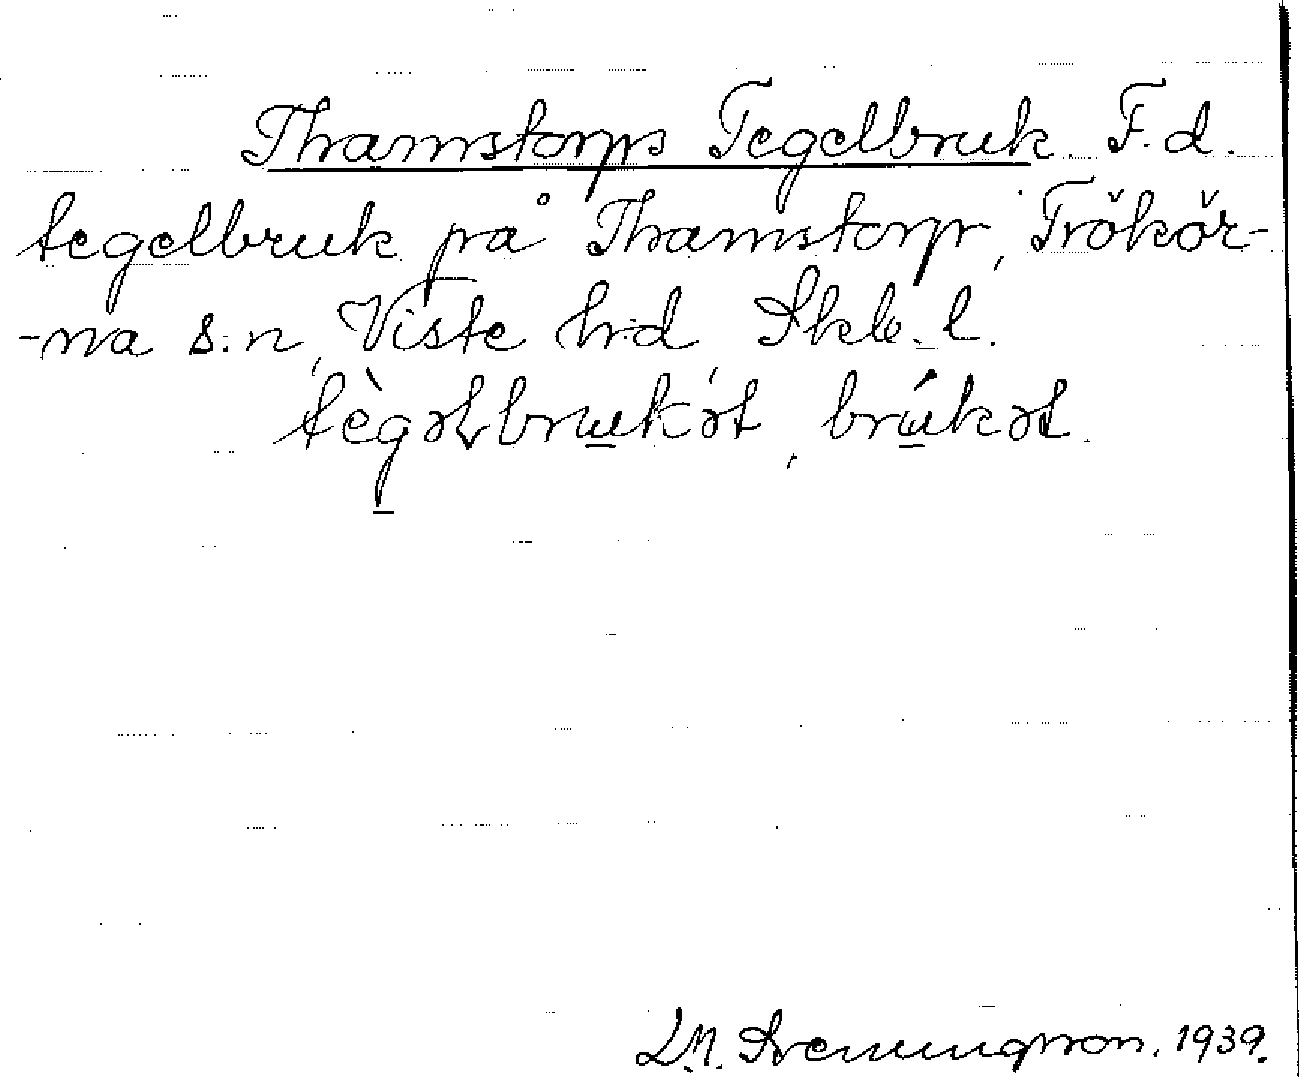 Thamstorps Tegelbruk F.d.
tegelbruk på Thamstorp, Trökör-
-na s:n, Viste h:d, Skb. l.
tègəɽbru̲kət, brú̲kət.
1939.